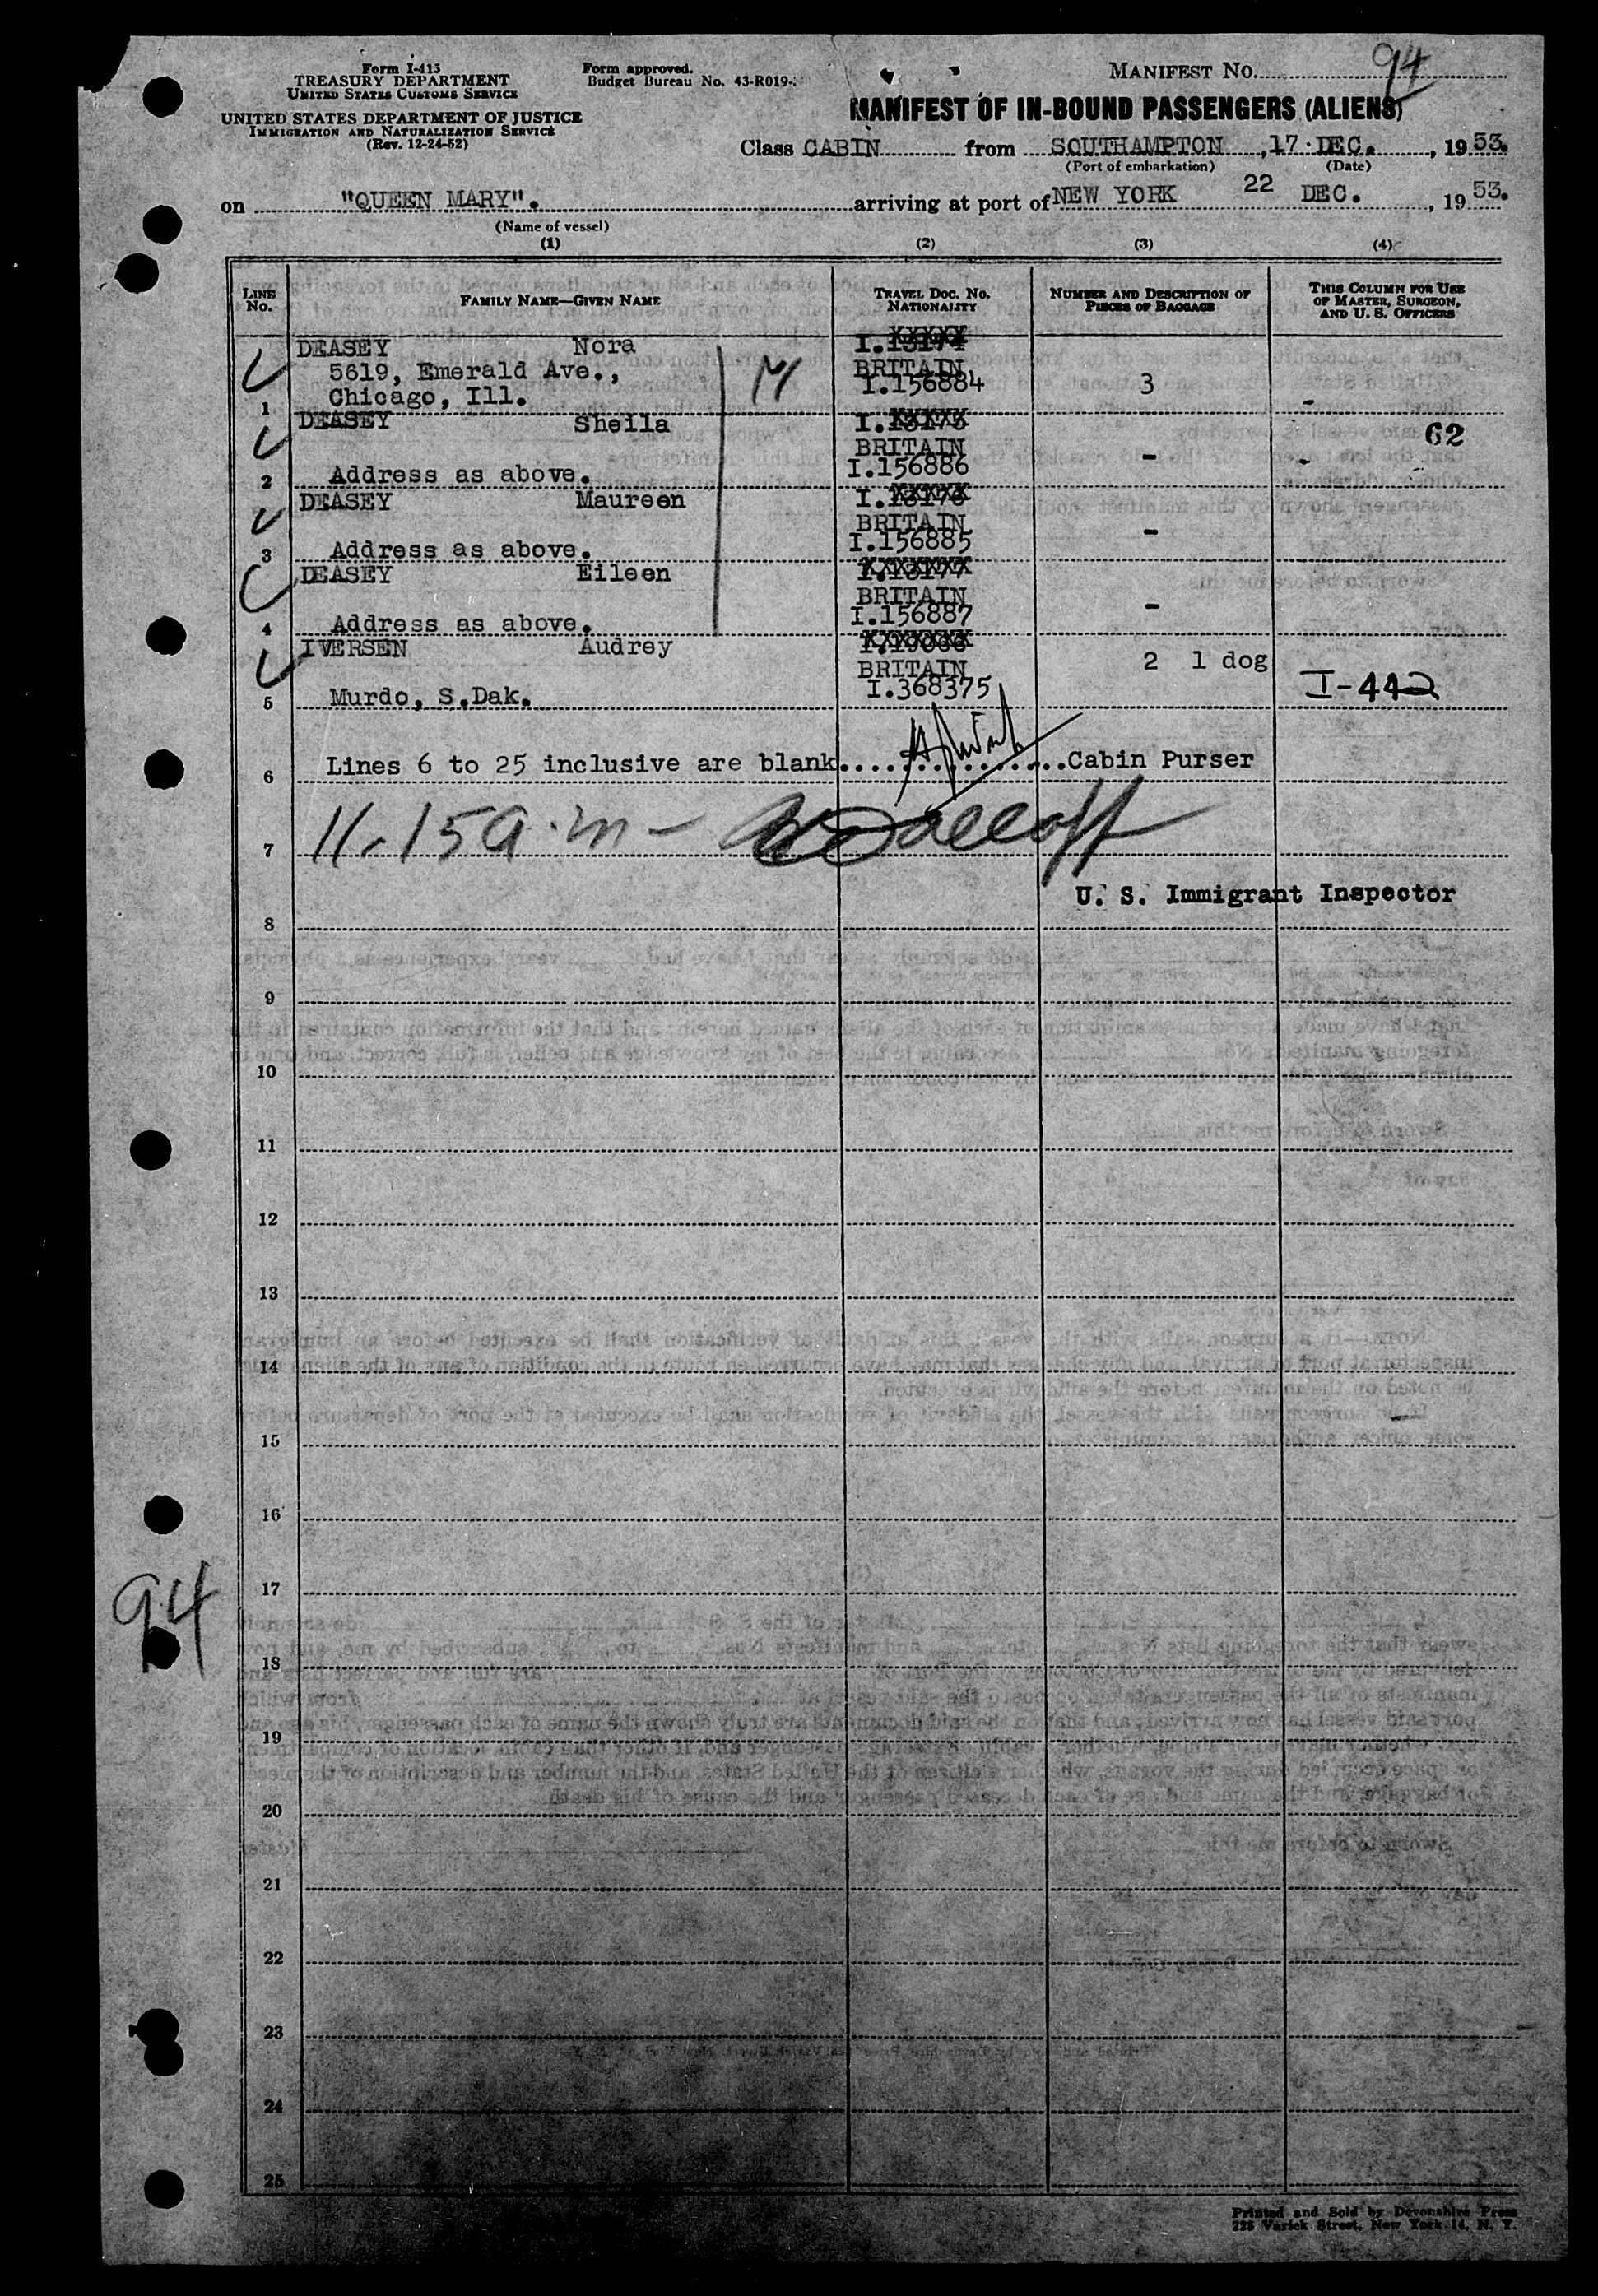 Form I-415
TREASURY DEPARTMENT
UNITED STATES CUSTOMS SERVICE
UNITED STATES DEPARTMENT OF JUSTICE
IMMIGRATION AND NATURALIZATION SERVICE
(Rev. 12-24-52)
Form approved.
Budget Bureau No. 43-R019-
MANIFEST NO. 94
MANIFEST OF IN-BOUND PASSENGERS (ALIENS)
Class CABIN from SOUTHAMPTON, 17 DEC., 1953.
(Port of embarkation) (Date)
on "QUEEN MARY". arriving at port of NEW YORK 22 DEC., 1953.
(Name of vessel)
(1) (2) (3) (4)
LINE NO.
FAMILY NAME—GIVEN NAME
TRAVEL DOC. NO. NATIONALITY
NUMBER AND DESCRIPTION OF PIECES OF BAGGAGE
THIS COLUMN FOR USE OF MASTER, SURGEON, AND U. S. OFFICERS
DEASEY Nora
BRITAIN
5619, Emerald Ave.,
I.156884 3
1 Chicago, Ill. -
DEASEY Sheila
BRITAIN - 62
2 Address as above. I.156886 -
DEASEY Maureen
BRITAIN -
3 Address as above. I.156885
DEASEY Eileen
BRITAIN -
4 Address as above. I.156887
IVERSEN Audrey
BRITAIN 2 1 dog
5 Murdo, S.Dak. I.368375 I-442
6 Lines 6 to 25 inclusive are blank................Cabin Purser
7 11.15 a.m -
U. S. Immigrant Inspector
8
9
10
11
12
13
14
15
16
17
94
18
19
20
21
22
23
24
25
Printed and Sold by Devonshire Press
225 Varick Street, New York 14, N. Y.